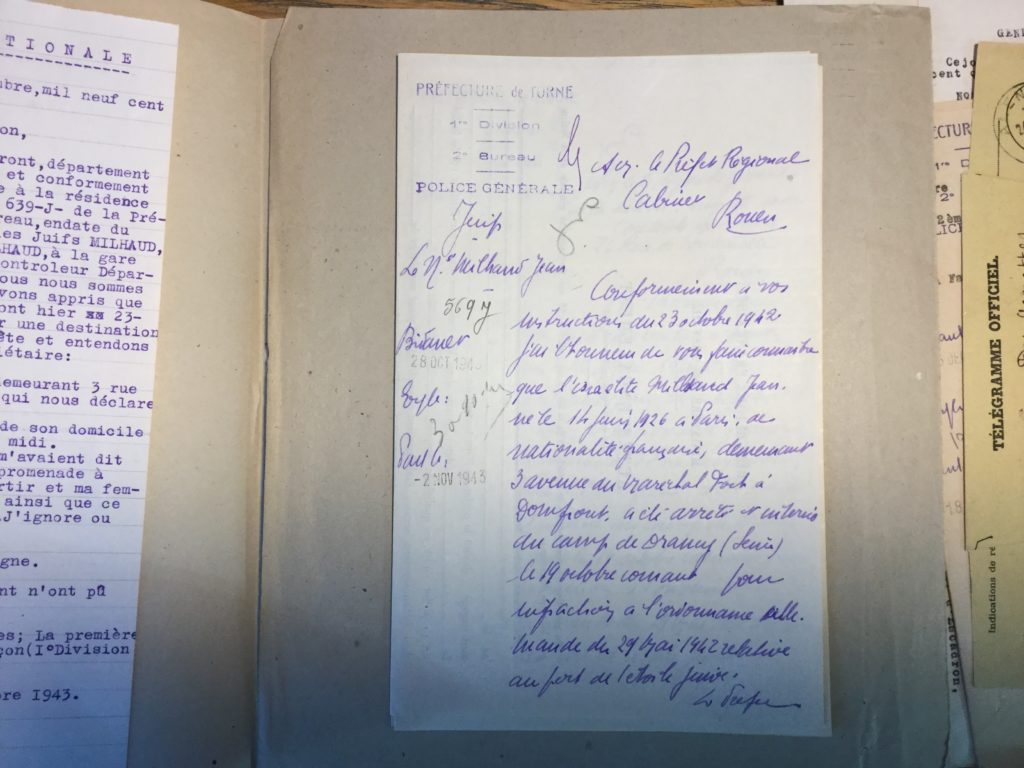 TIONALE
mbre,mil neuf cent
on,
ront,département
et conformement
e à la résidence
639-J- de la Pré-
reau,endate du
les Juifs MILHAUD,
HAUD,à la gare
ontroleur Dépar-
ous nous sommes
vons appris que
ont hier xx 23-
r une destination
ête et entendons
iétaire:
emeurant 3 rue
qui nous déclare
de son domicile
midi.
m'avaient dit
promenade à
rtir et ma fem-
ainsi que ce
J'ignore ou
gne.
nt n'ont pû
es; La première
çon(I°Division
bre 1943.
PRÉFECTURE de l'ORNE
1re Division
2e Bureau
POLICE GÉNÉRALE
Juifs
Milhaud Jean
569 J
28 OCT 1943
-2 NOV 1943
le Préfet Régional
Cabinet
Rouen
Conformément à vos
instructions du 23 octobre 1942
j'ai l'honneur de vous faire connaître
que l'israélite Milhaud Jean
né le 14 juin 1926 à Paris, de
nationalité française, demeurant
3 avenue du Maréchal Foch à
Domfront, a été arrêté et interné
au camp de Drancy (Seine)
le 19 octobre courant pour
infraction à l'ordonnance alle-
mande du 29 Mai 1942 relative
au port de l'étoile juive.
Le Préfet
TÉLÉGRAMME OFFICIEL.
Indications de